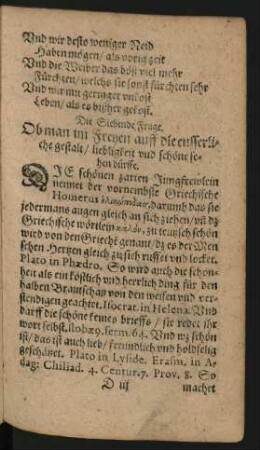 Vnd wir desto weniger Neid
Haben mögen / als vorig zeit
Vnd die Weiber das böß viel mehr
Fürchten / welchs sie sonst fürchten sehr
Vnd wir mit geringer vnkost
Leben / als es bißher gekost.
Die Siebende Frage.
Ob man im Freyen auff die eusserli-
che gestalt / liebligkeit vnd schöne se-
hen dürffe.
DIE schönen zarten Jungfrewlein
nennet der vornembste Griechische
Homerus darumb das sie
jedermans augen gleich an sich ziehen / vñ dz
Griechische wörtlein καλὸν, zu teutzsch schön
wird von den Griechē genant / dz es der Men
schen Hertzen gleich zu sich ruffet vnd locket.
Plato in Phædro. So wird auch die schön-
heit als ein köstlich vnd herrlich ding für den
halben Brautschatz von den weisen vnd ver-
stendigen geachtet. Isocrat. in Helena. Vnd
darff die schöne keines brieffs / sie redet ihr
wort selbst. stobæo. serm. 64. Vnd wz schön
ist / das ist auch lieb / freundlich vnd holdselig
geschätzet. Plato in Lyside. Erasm. in A-
dag: Chiliad. 4. Centur. 7. Prov. 8. So
D iij machet